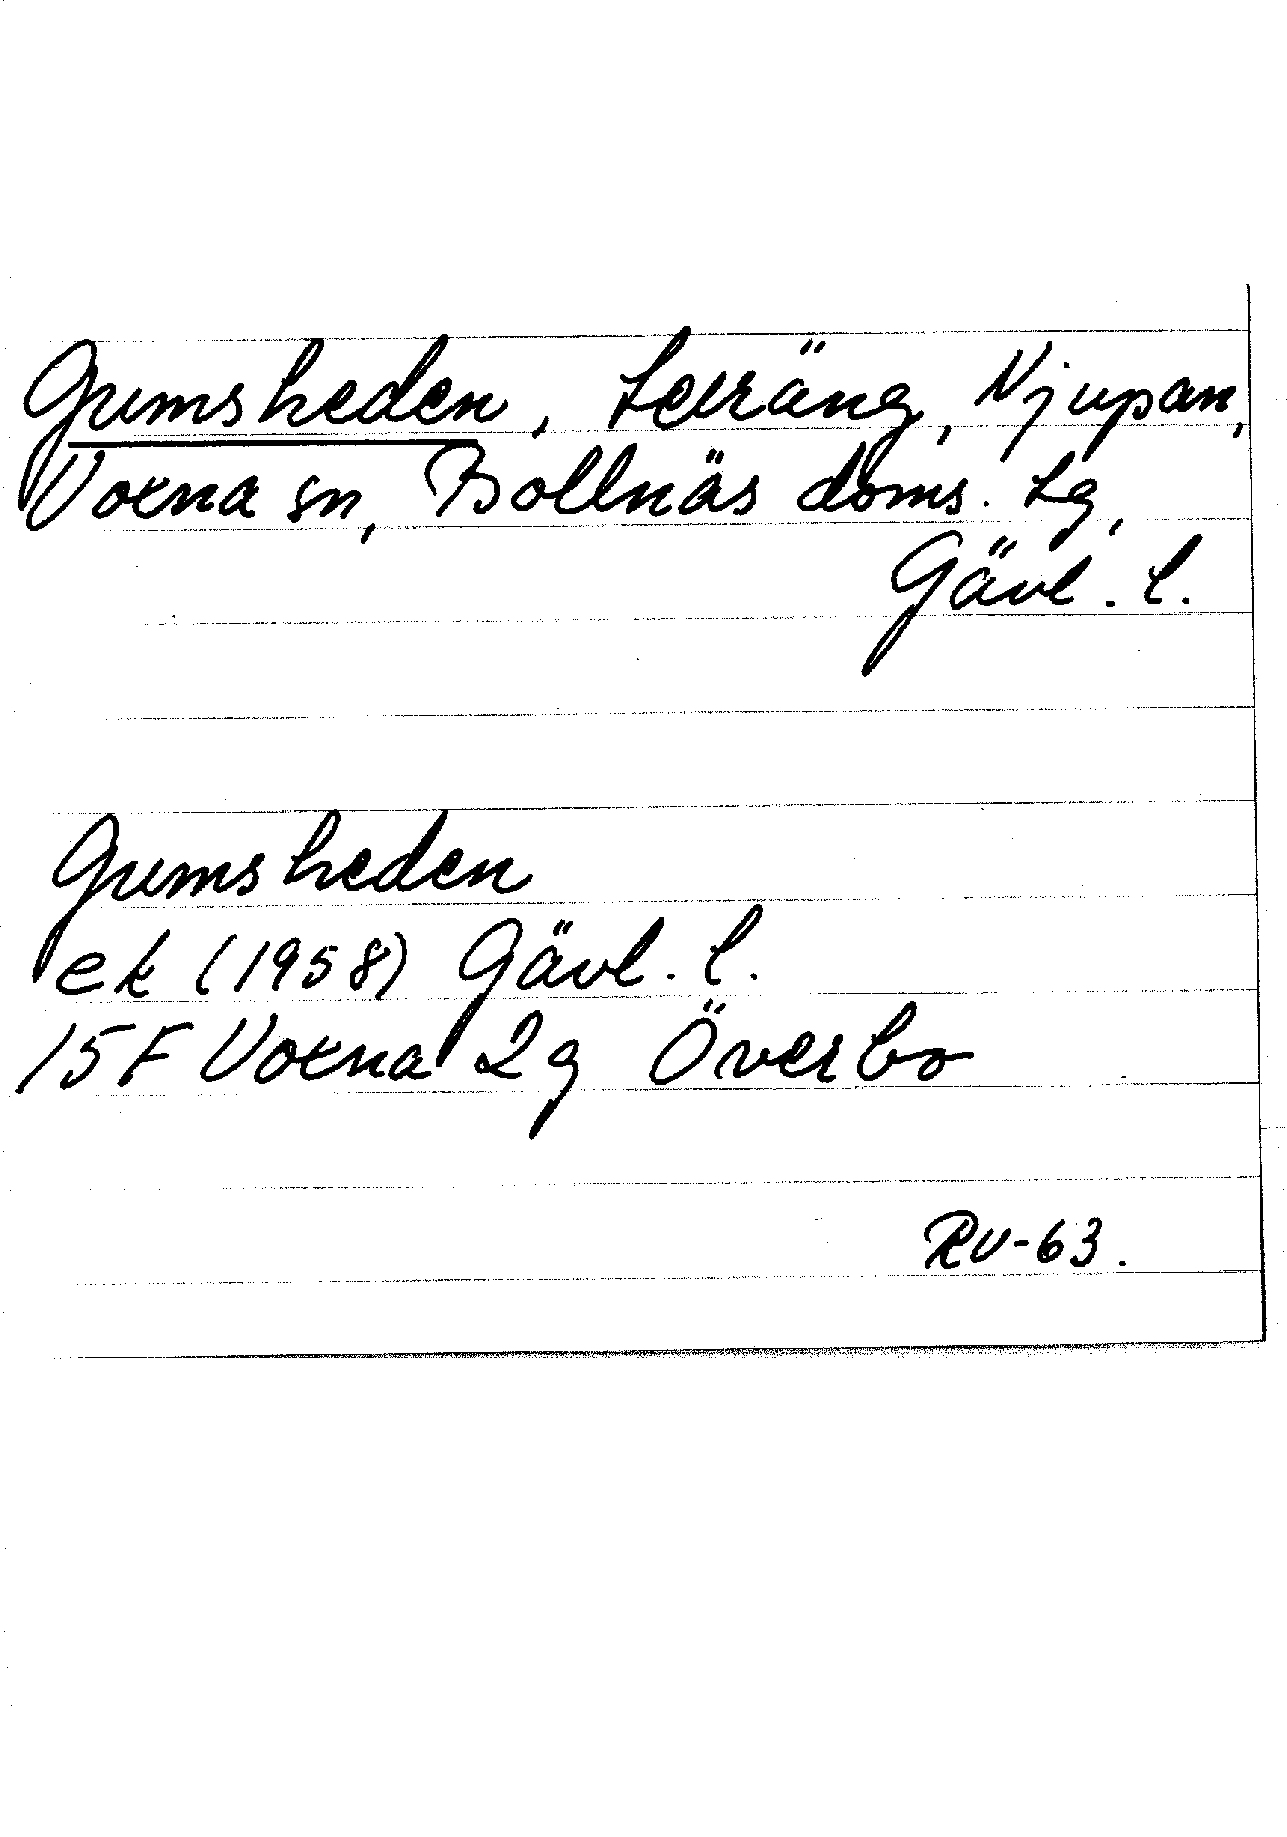 Gumsheden, Leräng, Njupan,
Voxna sn, Bollnäs doms. lg,
Gävl. l.
Gumsheden
ek (1958) Gävl. l.
15F Voxna 2g Överbo
RV-63.